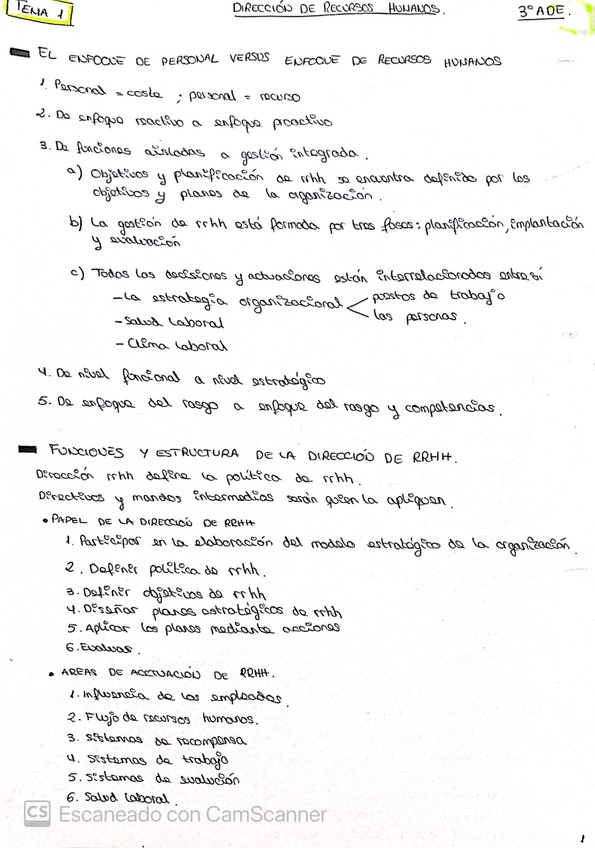 TEMA 1
DIRECCIÓN DE RECURSOS HUMANOS.
3º ADE.
EL ENFOQUE DE PERSONAL VERSUS ENFOQUE DE RECURSOS HUMANOS
1. Personal = coste ; personal = recurso
2. De enfoque reactivo a enfoque proactivo
3. De funciones aisladas a gestión integrada.
a) Objetivos y planificación de rrhh se encuentra definido por los
objetivos y planes de la organización.
b) La gestión de rrhh está formada por tres fases: planificación, implantación
y evaluación
c) Todas las decisiones y actuaciones están interrelacionadas entre sí
- La estrategia organizacional < puestos de trabajo
las personas.
- Salud laboral
- Clima laboral
4. De nivel funcional a nivel estratégico
5. De enfoque del rasgo a enfoque del rasgo y competencias.
FUNCIONES Y ESTRUCTURA DE LA DIRECCIÓN DE RRHH.
Dirección rrhh define la política de rrhh.
Directivos y mandos intermedios serán quien la apliquen.
• PAPEL DE LA DIRECCIÓN DE RRHH
1. Participar en la elaboración del modelo estratégico de la organización.
2. Definir política de rrhh.
3. Definir objetivos de rrhh
4. Diseñar planes estratégicos de rrhh
5. Aplicar los planes mediante acciones
6. Evaluar.
• AREAS DE ACCTUACIÓN DE RRHH.
1. Influencia de los empleados.
2. Flujo de recursos humanos.
3. Sistemas de recompensa
4. Sistemas de trabajo
5. Sistemas de evalución
6. Salud laboral.
CS Escaneado con CamScanner
1